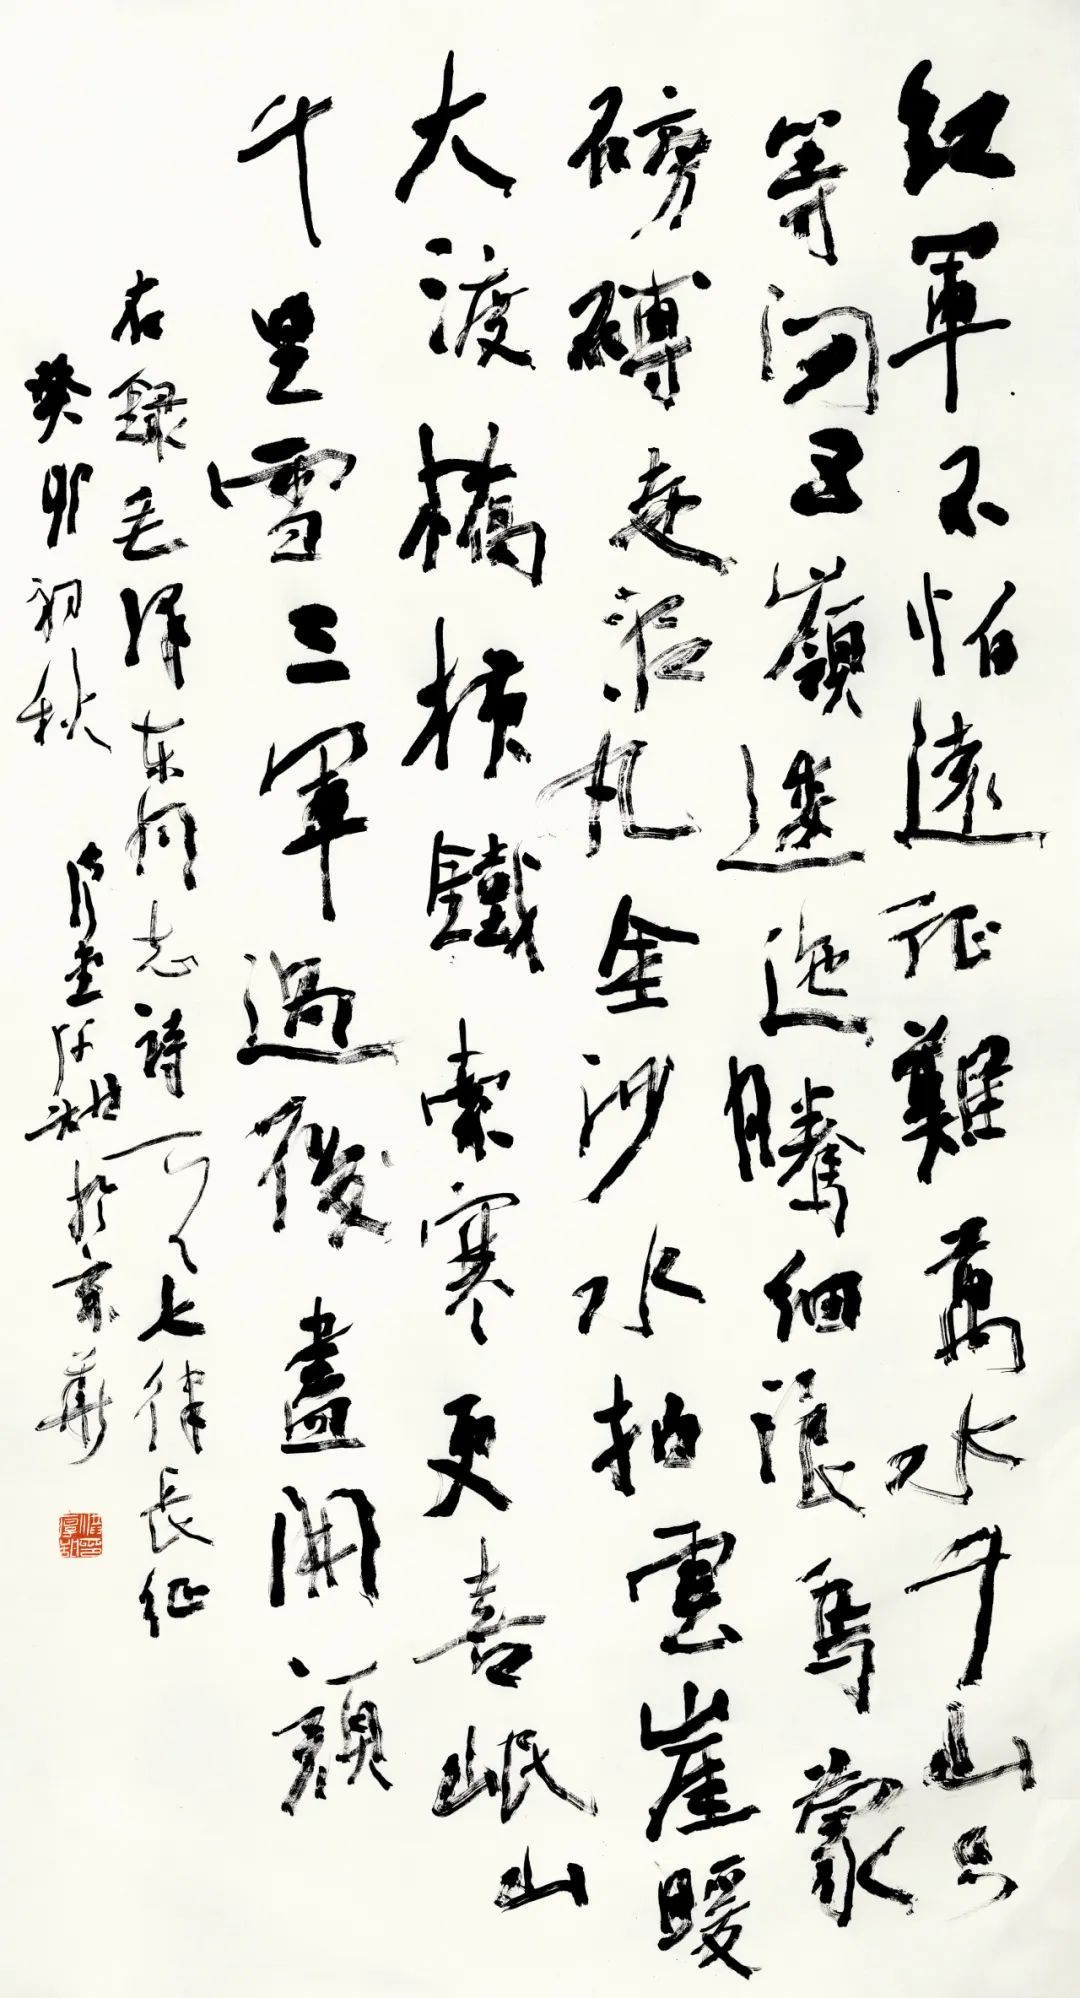 紅軍不怕遠征難萬水千山只
等閒五嶺逶迤騰細浪烏蒙
磅礴走泥丸金沙水拍雲崖暖
大渡橋横鐵索寒更喜岷山
千里雪三軍過後盡開顏
右錄毛澤東同志詩一首七律長征
癸卯初秋 淨堂厚甜於京華
洪厚甜印